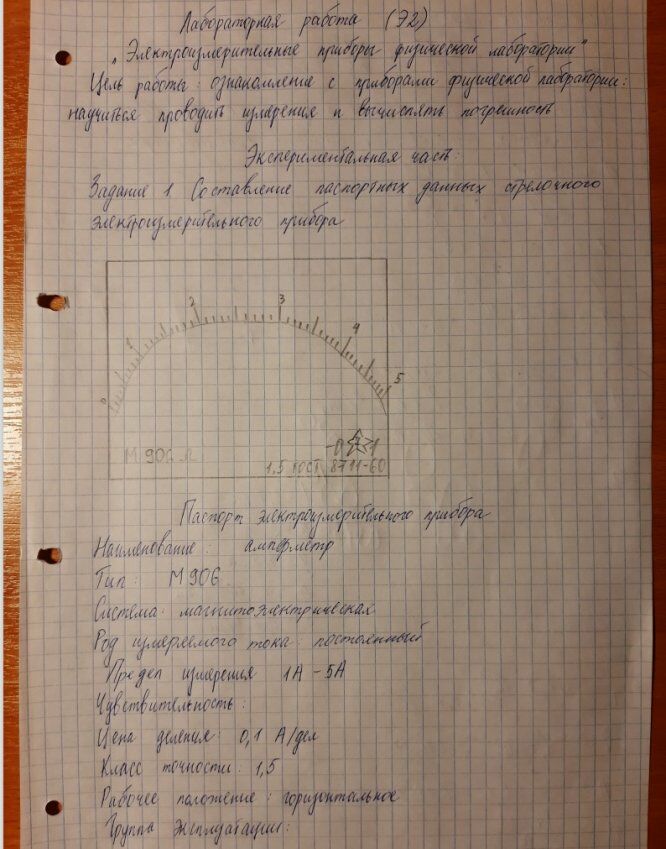 Лабораторная работа (Э2)
"Электроизмерительные приборы физической лаборатории"
Цель работы: ознакомление с приборами физической лаборатории:
научиться проводить измерения и вычислять погрешность
Экспериментальная часть:
Задание 1 Составление паспортных данных стрелочного
электроизмерительного прибора
0 1 2 3 4 5
М 906
1,5 ГОСТ 8711-60
Паспорт электроизмерительного прибора
Наименование: амперметр
Тип: М 906
Система: магнитоэлектрическая
Род измеряемого тока: постоянный
Предел измерения 1А - 5А
Чувствительность:
Цена деления: 0,1 А/дел
Класс точности: 1,5
Рабочее положение: горизонтальное
Группа эксплуатации: